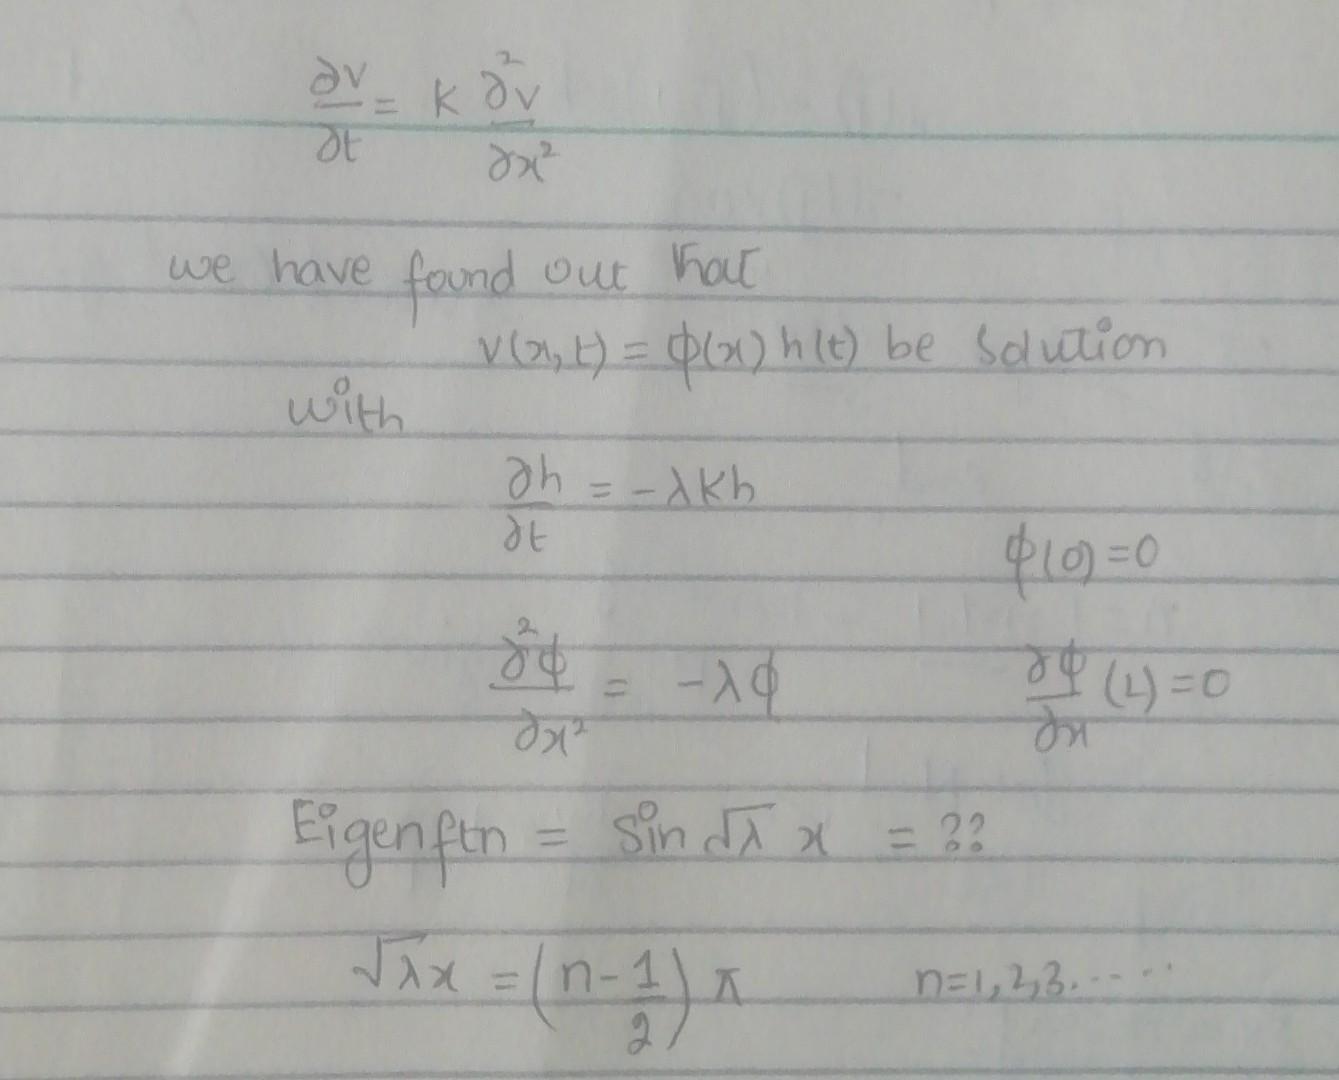 ∂v/∂t = k ∂²v/∂x²
we have found out that
v(x,t) = φ(x) h(t) be solution
with
∂h/∂t = -λkh
φ(0) = 0
∂²φ/∂x² = -λφ    ∂φ/∂x (L) = 0
Eigenftn = sin √λ x = ??
√λ x = (n - 1/2) π    n = 1, 2, 3. .....